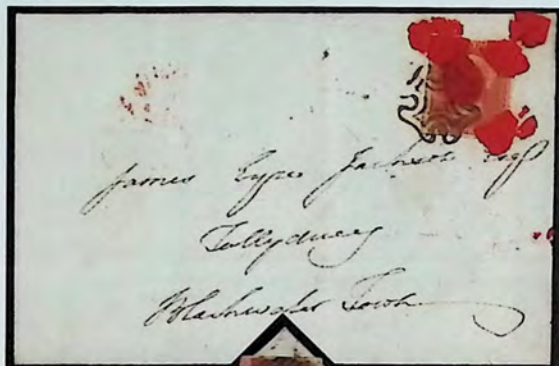 James Eyre Jackson Esqr
Tullydoey
Blackwater Town